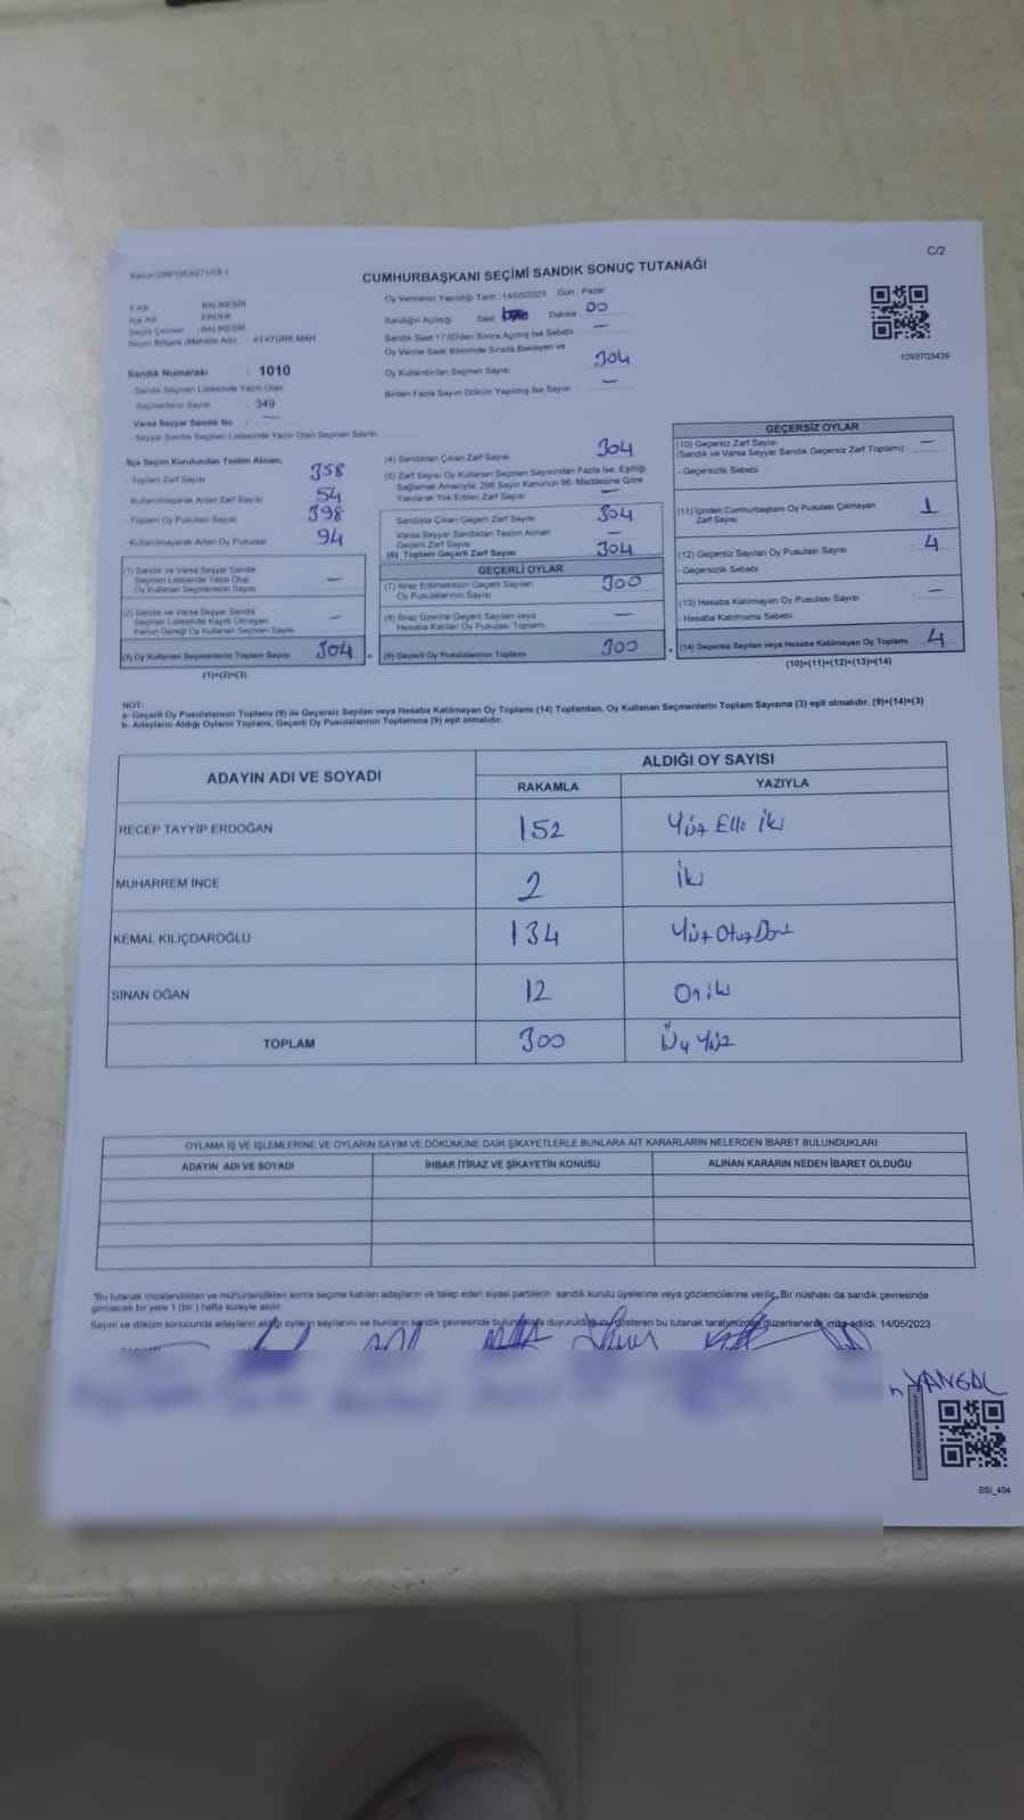 C/2
CUMHURBAŞKANI SEÇİMİ SANDIK SONUÇ TUTANAĞI
Oy Vermenin Yapıldığı Tarih : 14/05/2023 Gün : Pazar
İl Adı BALIKESİR
İlçe Adı ERDEK
Seçim Çevresi BALIKESİR
ATATÜRK MAH
Sandığın Açıldığı Saat Dakika 00
Sandık Saat 17:00'den Sonra Açılmış İse Sebebi —
Oy Verme Saati Bitiminde Sırada Bekleyen ve
Oy Kullandırılan Seçmen Sayısı 304
Birden Fazla Sayım Döküm Yapılmış İse Sayısı —
1093703439
Sandık Numarası : 1010
Sandık Seçmen Listesinde Yazılı Olan
Seçmenlerin Sayısı : 349
Varsa Seyyar Sandık No : —
Seyyar Sandık Seçmen Listesinde Yazılı Olan Seçmen Sayısı:
İlçe Seçim Kurulundan Teslim Alınan;
Toplam Zarf Sayısı 358
Kullanılmayarak Artan Zarf Sayısı 54
Toplam Oy Pusulası Sayısı 398
Kullanılmayarak Artan Oy Pusulası 94
(1) Sandık ve Varsa Seyyar Sandık
Seçmen Listesinde Yazılı Olup
Oy Kullanan Seçmenlerin Sayısı —
(2) Sandık ve Varsa Seyyar Sandık
Seçmen Listesinde Kayıtlı Olmayan
Kanun Gereği Oy Kullanan Seçmen Sayısı —
(3) Oy Kullanan Seçmenlerin Toplam Sayısı 304
(1)+(2)=(3)
(4) Sandıktan Çıkan Zarf Sayısı 304
(5) Zarf Sayısı Oy Kullanan Seçmen Sayısından Fazla İse, Eşitliği
Sağlamak Amacıyla; 298 Sayılı Kanunun 98. Maddesine Göre
Yakılarak Yok Edilen Zarf Sayısı —
Sandıkta Çıkan Geçerli Zarf Sayısı 304
Varsa Seyyar Sandıktan Teslim Alınan
Geçerli Zarf Sayısı —
(6) Toplam Geçerli Zarf Sayısı 304
GEÇERLİ OYLAR
(7) İtiraz Edilmeksizin Geçerli Sayılan
Oy Pusulalarının Sayısı 300
(8) İtiraz Üzerine Geçerli Sayılan veya
Hesaba Katılan Oy Pusulası Toplamı —
(9) Geçerli Oy Pusulalarının Toplamı 300
GEÇERSİZ OYLAR
(10) Geçersiz Zarf Sayısı
(Sandık ve Varsa Seyyar Sandık Geçersiz Zarf Toplamı) —
Geçersizlik Sebebi
(11) İçinden Cumhurbaşkanı Oy Pusulası Çıkmayan
Zarf Sayısı 1
(12) Geçersiz Sayılan Oy Pusulası Sayısı 4
Geçersizlik Sebebi
(13) Hesaba Katılmayan Oy Pusulası Sayısı —
Hesaba Katılmama Sebebi
(14) Geçersiz Sayılan veya Hesaba Katılmayan Oy Toplamı 4
(10)+(11)+(12)+(13)=(14)
NOT:
a- Geçerli Oy Pusulalarının Toplamı (9) ile Geçersiz Sayılan veya Hesaba Katılmayan Oy Toplamı (14) Toplamları, Oy Kullanan Seçmenlerin Toplam Sayısına (3) eşit olmalıdır. (9)+(14)=(3)
b- Adayların Aldığı Oyların Toplamı, Geçerli Oy Pusulalarının Toplamına (9) eşit olmalıdır.
ADAYIN ADI VE SOYADI
ALDIĞI OY SAYISI
RAKAMLA YAZIYLA
RECEP TAYYİP ERDOĞAN 152 Yüz Elli İki
MUHARREM İNCE 2 İki
KEMAL KILIÇDAROĞLU 134 Yüz Otuz Dört
SİNAN OĞAN 12 On iki
TOPLAM 300 Üç Yüz
OYLAMA İŞ VE İŞLEMLERİNE VE OYLARIN SAYIM VE DÖKÜMÜNE DAİR ŞİKAYETLERLE BUNLARA AİT KARARLARIN NELERDEN İBARET BULUNDUKLARI
ADAYIN ADI VE SOYADI İHBAR İTİRAZ VE ŞİKAYETİN KONUSU ALINAN KARARIN NEDEN İBARET OLDUĞU
*Bu tutanak imzalandıktan ve mühürlendikten sonra seçime katılan adayların ve talep eden siyasi partilerin sandık kurulu üyelerine veya gözlemcilerine verilir. Bir nüshası da sandık çevresinde
görülecek bir yere 1 (bir) hafta süreyle asılır.
Sayım ve döküm sonucunda adayların aldığı oyların sayılarını ve bunların sandık çevresinde duyurulduğunu gösteren bu tutanak tarafımızdan düzenlenerek imza edildi. 14/05/2023
SSI_404